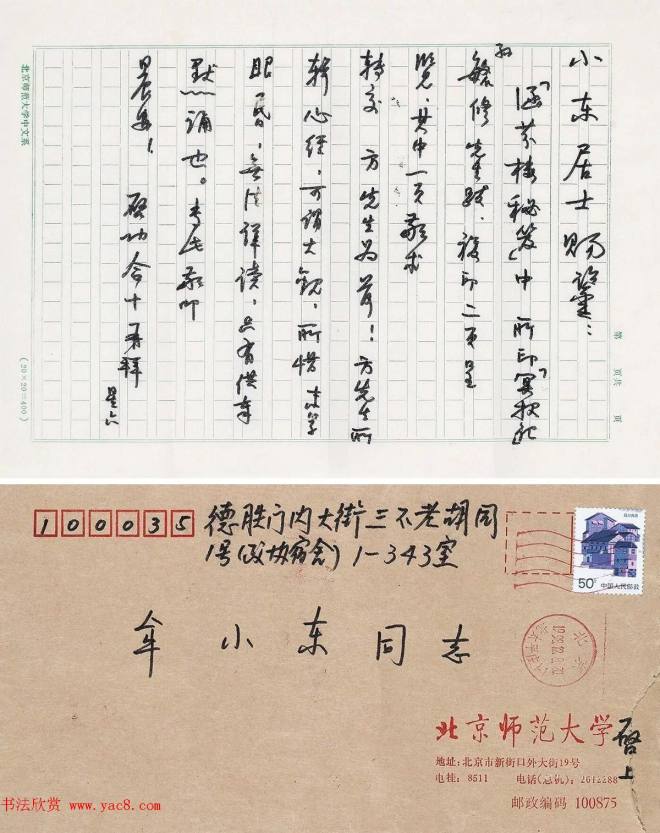 小东居士赐鉴：
「涵芬楼秘笈」中所印「冥报记」
孙毓修先生跋，複印二页呈
览，其中一页敬求
转交 方先生为荷！方先生所
辑心经，可谓大观，所惜 末学
眼昏，無法详读，只有供奉
默诵也。专此敬叩
晨安！ 启功合十再拜
星六
北京师范大学中文系
第 页共 页
(20×20=400)
100035
德胜门内大街三不老胡同
1号(政协宿舍) 1-343室
牟小东同志
50分 中国人民邮政
北京
北京师范大学 启上
地址:北京市新街口外大街19号
电挂: 8511 电话(总机):
邮政编码 100875
书法欣赏 www.yac8.com